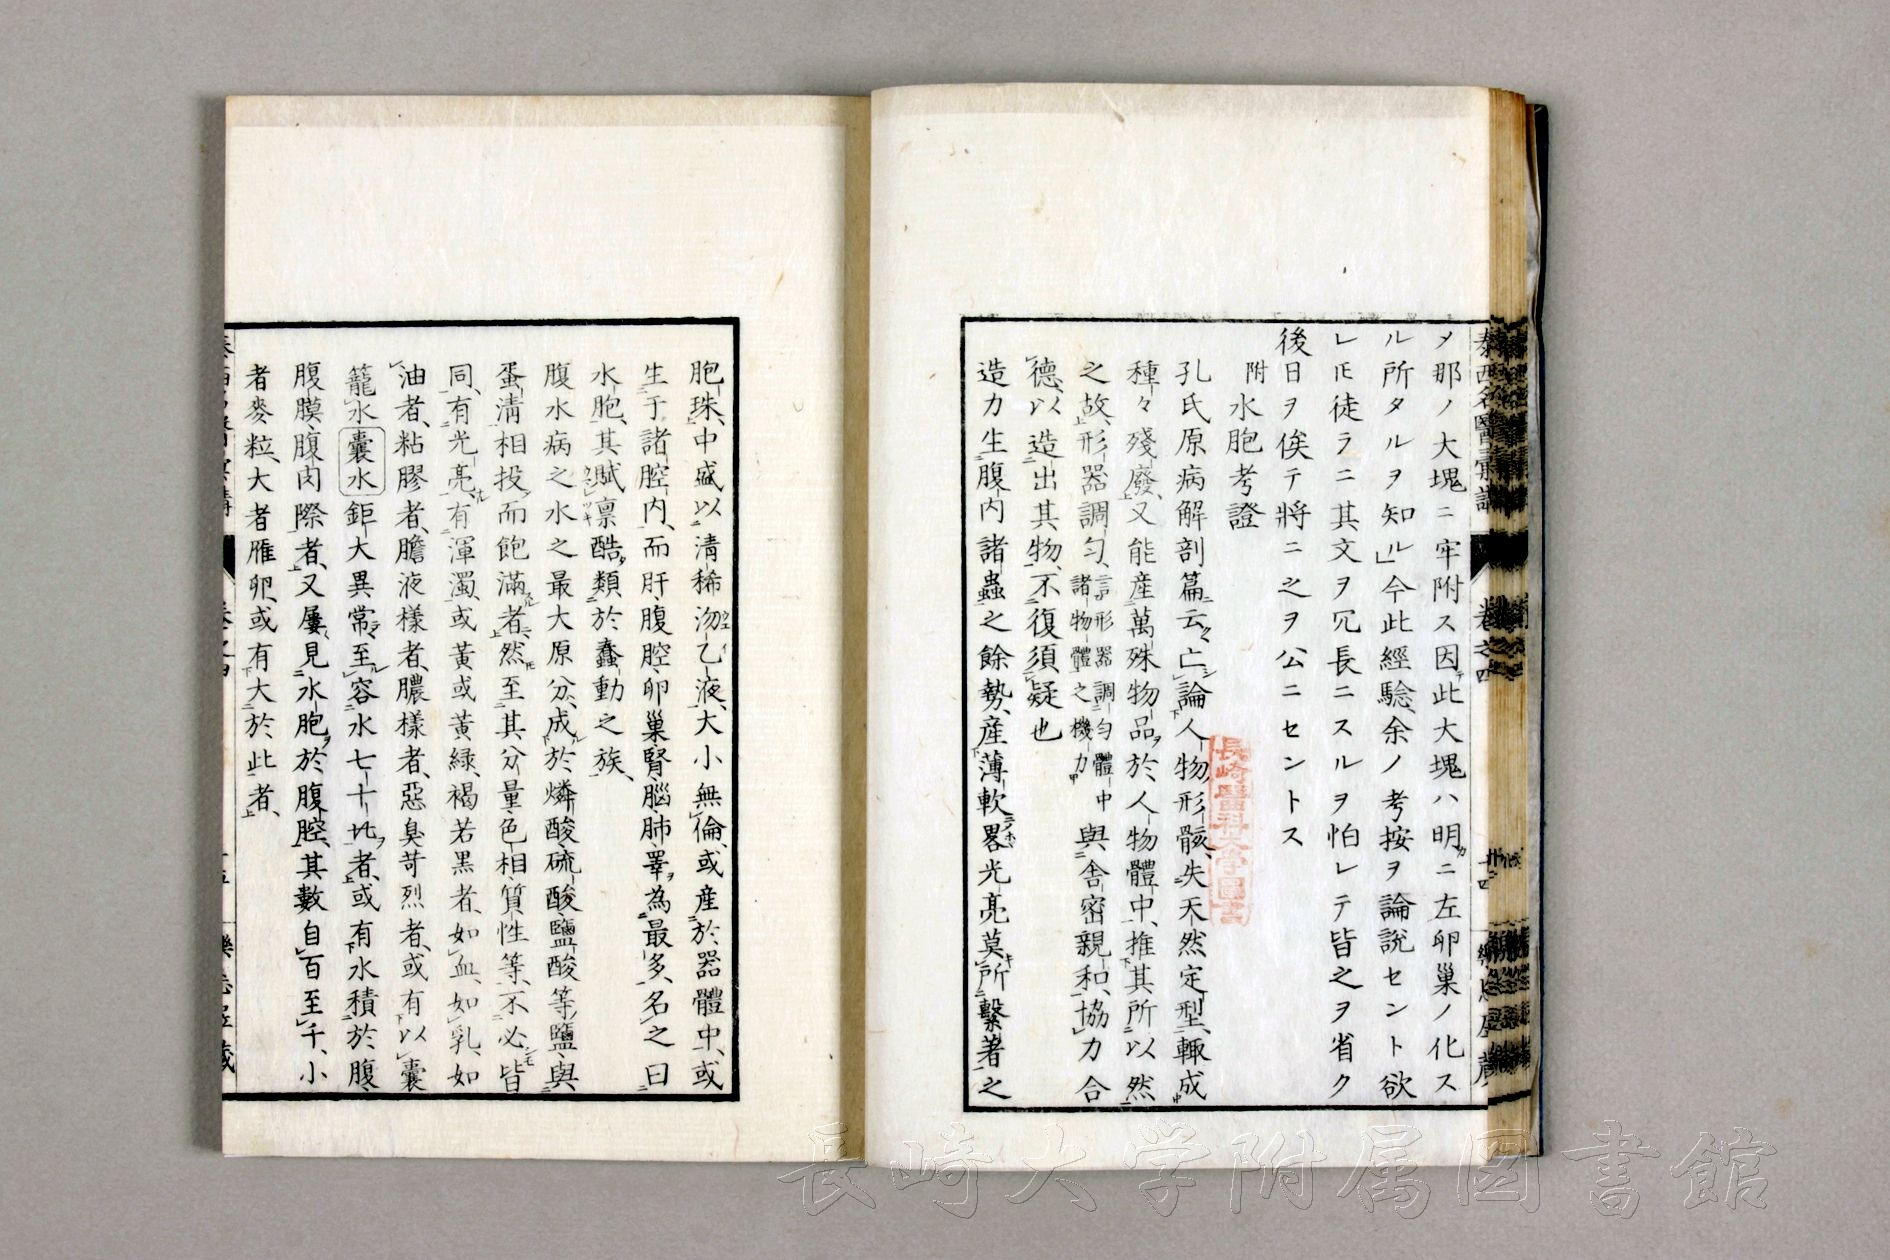 泰西名醫彙講 卷之四 廿四 樂志居藏
メ那ノ大塊ニ牢附ス因テ此大塊ハ明カニ左卵巢ノ化ス
ル所タルヲ知ル」今此經驗、余ノ考按ヲ論說セント欲
レ𪜈徒ラニ其文ヲ冗長ニスルヲ怕レテ皆之ヲ省ク
後日ヲ俟テ將ニ之ヲ公ニセントス
附水胞考證
孔氏原病解剖篇云亡論人物形骸失天然定型輙成
種々殘廢又能產萬殊物品於人物體中推其所以然
之故形器調勻言形器調勻體中諸物體之機力與舍密親和協力合
德以造出其物不復須疑也
造力生腹內諸蟲之餘勢產薄軟畧光亮莫所繫著之
胞珠中盛以清稀沕乙液大小無倫或産於器體中或
生于諸腔内而肝腹腔卵巢腎腦肺睪為最多名之曰
水胞其賦禀酷類於蠢動之族
腹水病之水之最大原分成於燐酸硫酸鹽酸等鹽與
蛋清相投而飽滿者然至其分量色相質性等不必皆
同有光亮有渾濁或黃或黃綠褐若黑者如血如乳如
油者粘膠者膽液樣者膿樣者惡臭苛烈者或有以囊
籠水囊水鉅大異常至容水七十比者或有水積於腹
腹膜腹肉際者又屢見水胞於腹腔其數自百至千小
者麥粒大者雁卵或有大於此者
長崎醫科大學圖書
長崎大学附属図書館